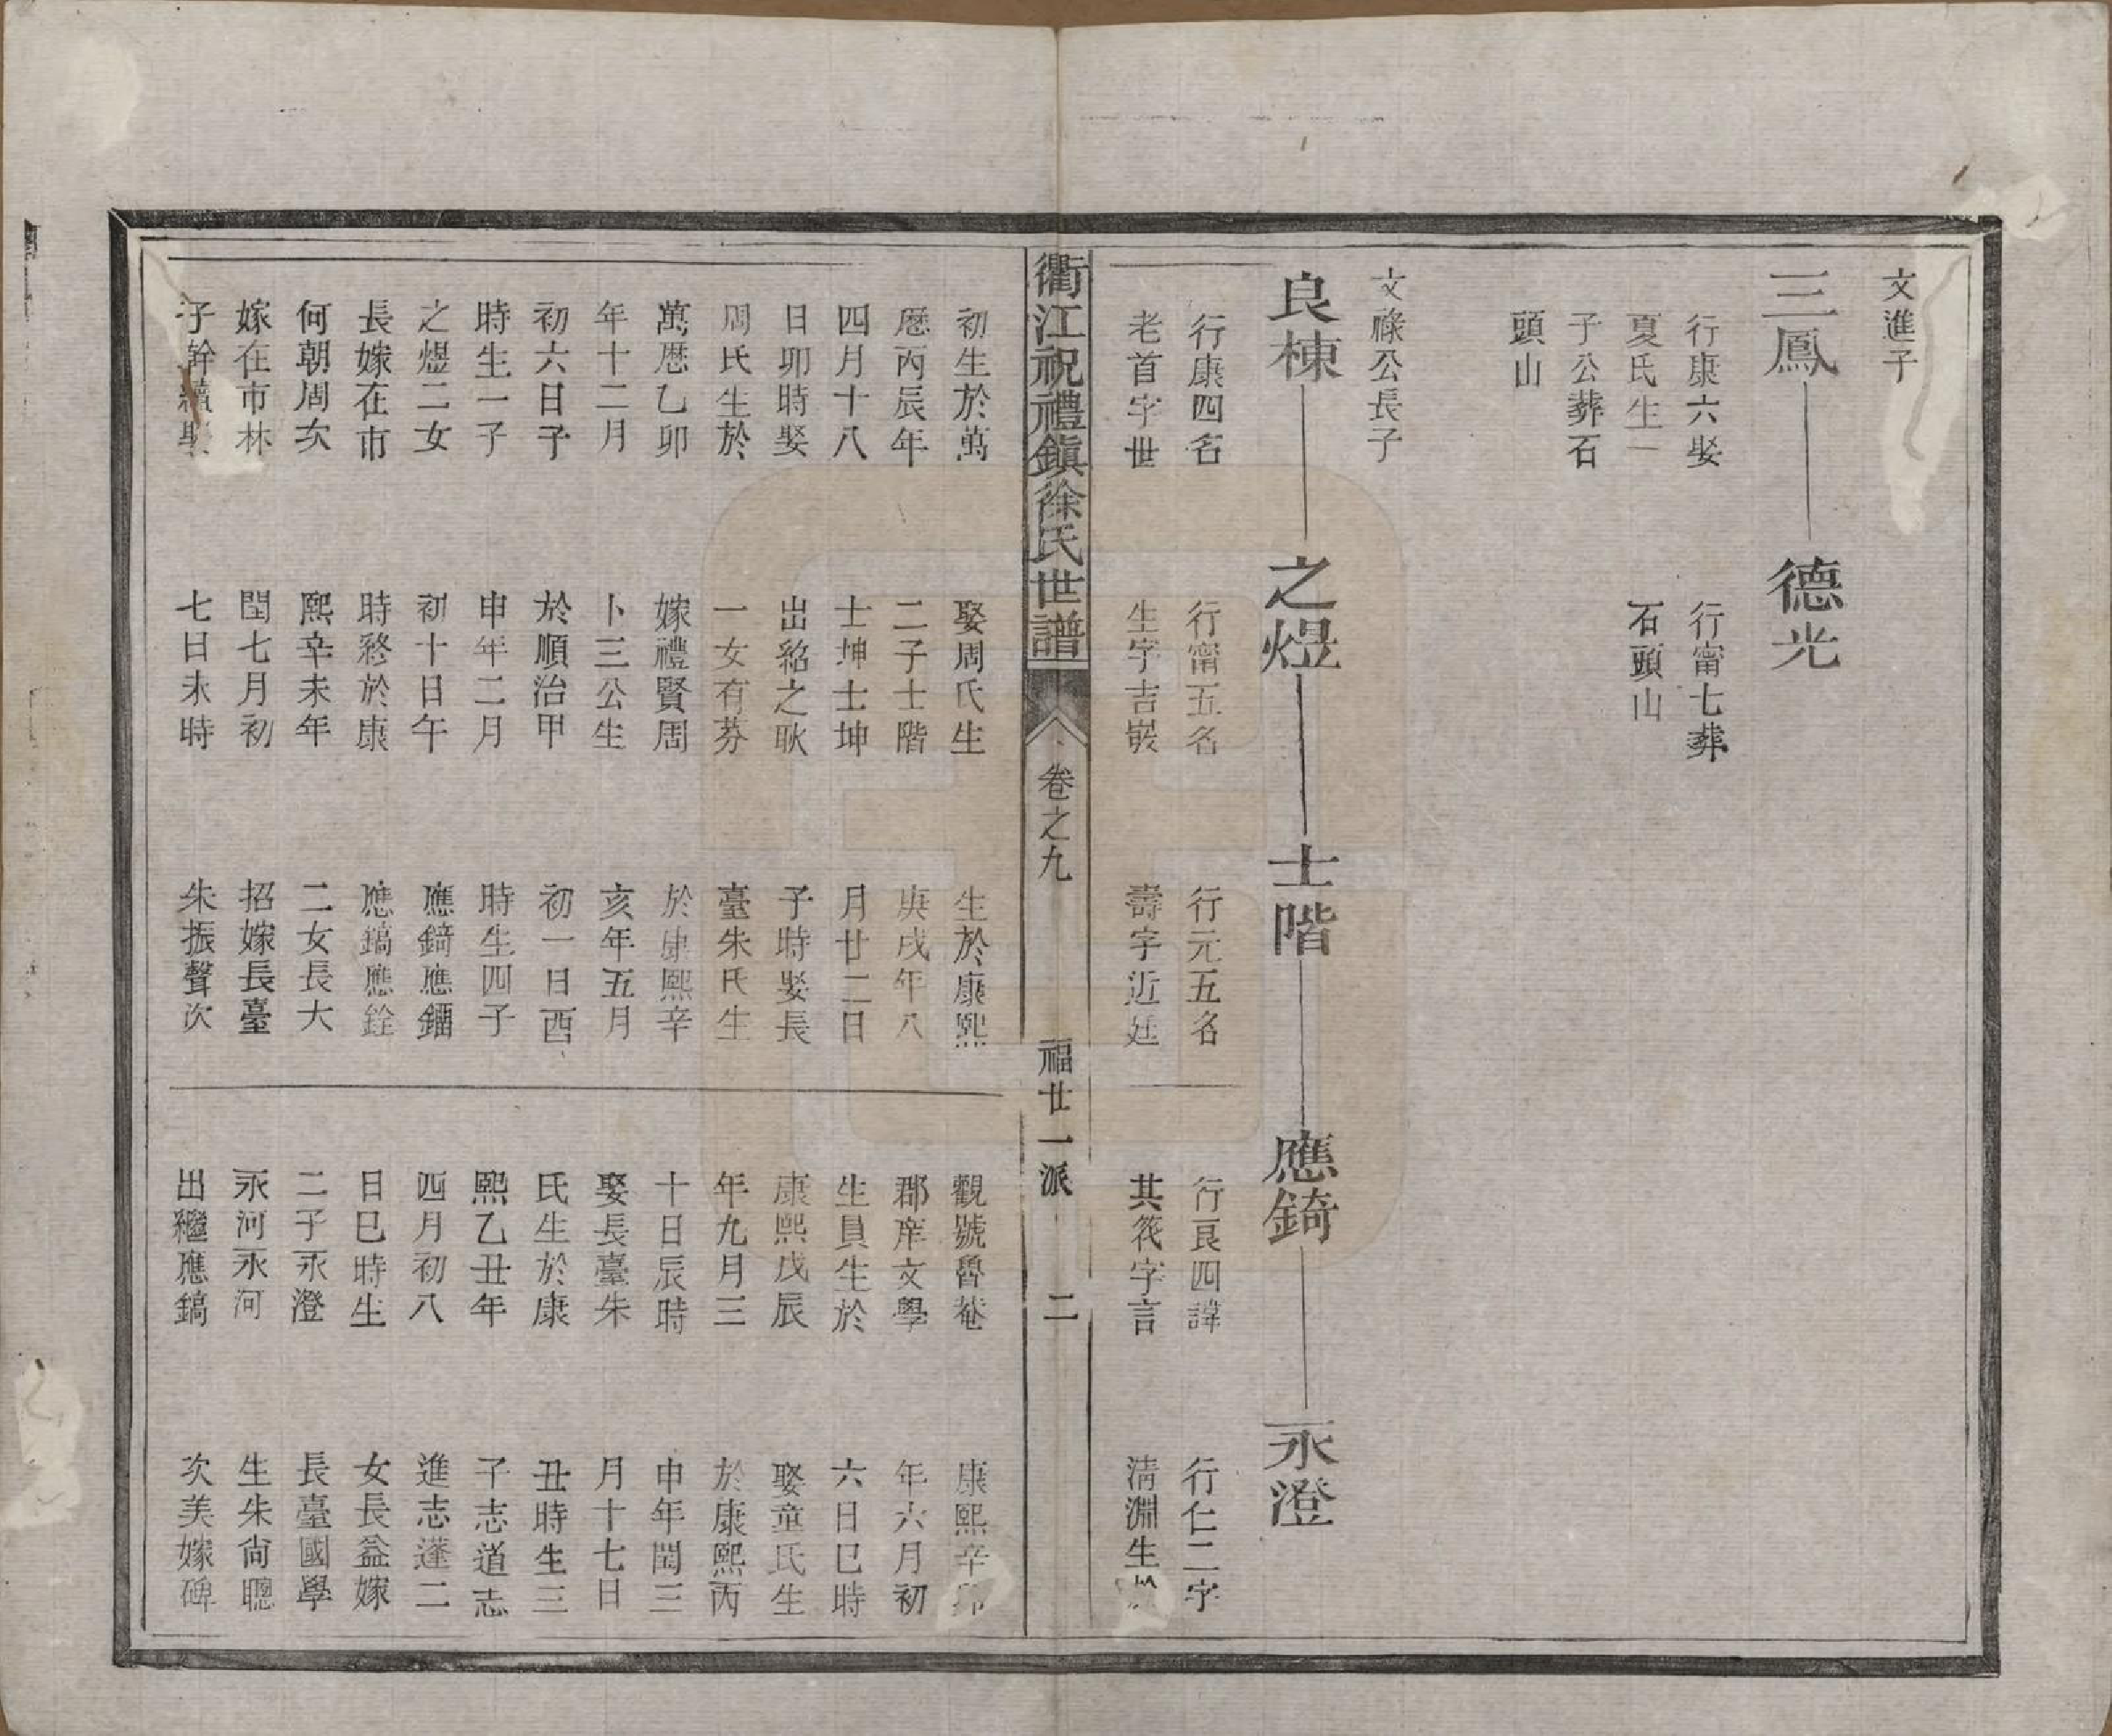 文進子
三鳳
行康六娶
夏氏生一
子公葬石
頭山
德光
行甯七葬
石頭山
文祿公長子
良棟
之煜
士階
應錡
永澄
行康四名
老首字世
行甯五名
生字吉嵌
行元五名
壽字近廷
行良四諱
其筏字言
行仁二字
清淵生
衢江祝禮鎮徐氏世譜
卷之九
福廿一派
二
初生於萬
歷丙辰年
四月十八
日卯時娶
周氏生於
萬歷乙卯
年十二月
初六日子
時生一子
之煜二女
長嫁在市
何朝周次
嫁在市林
子幹續娶
娶周氏生
二子士階
士坤士坤
出紹之耿
一女有芬
嫁禮賢周
卜三公生
於順治甲
申年二月
初十日午
時終於康
熙辛未年
閏七月初
七日未時
生於康熙
庚戌年八
月廿二日
子時娶長
臺朱氏生
於康熙辛
亥年五月
初一日酉
時生四子
應錡應鎦
應鎬應銓
二女長大
招嫁長臺
朱振聲次
觀號魯菴
郡庠文學
生員生於
康熙戊辰
年九月三
十日辰時
娶長臺朱
氏生於康
熙乙丑年
四月初八
日巳時生
二子永澄
永河永河
出繼應鎬
康熙辛卯
年六月初
六日巳時
娶童氏生
於康熙丙
申年閏三
月十七日
丑時生三
子志道志
進志蓬二
女長益嫁
長臺國學
生朱尙聰
次美嫁碑